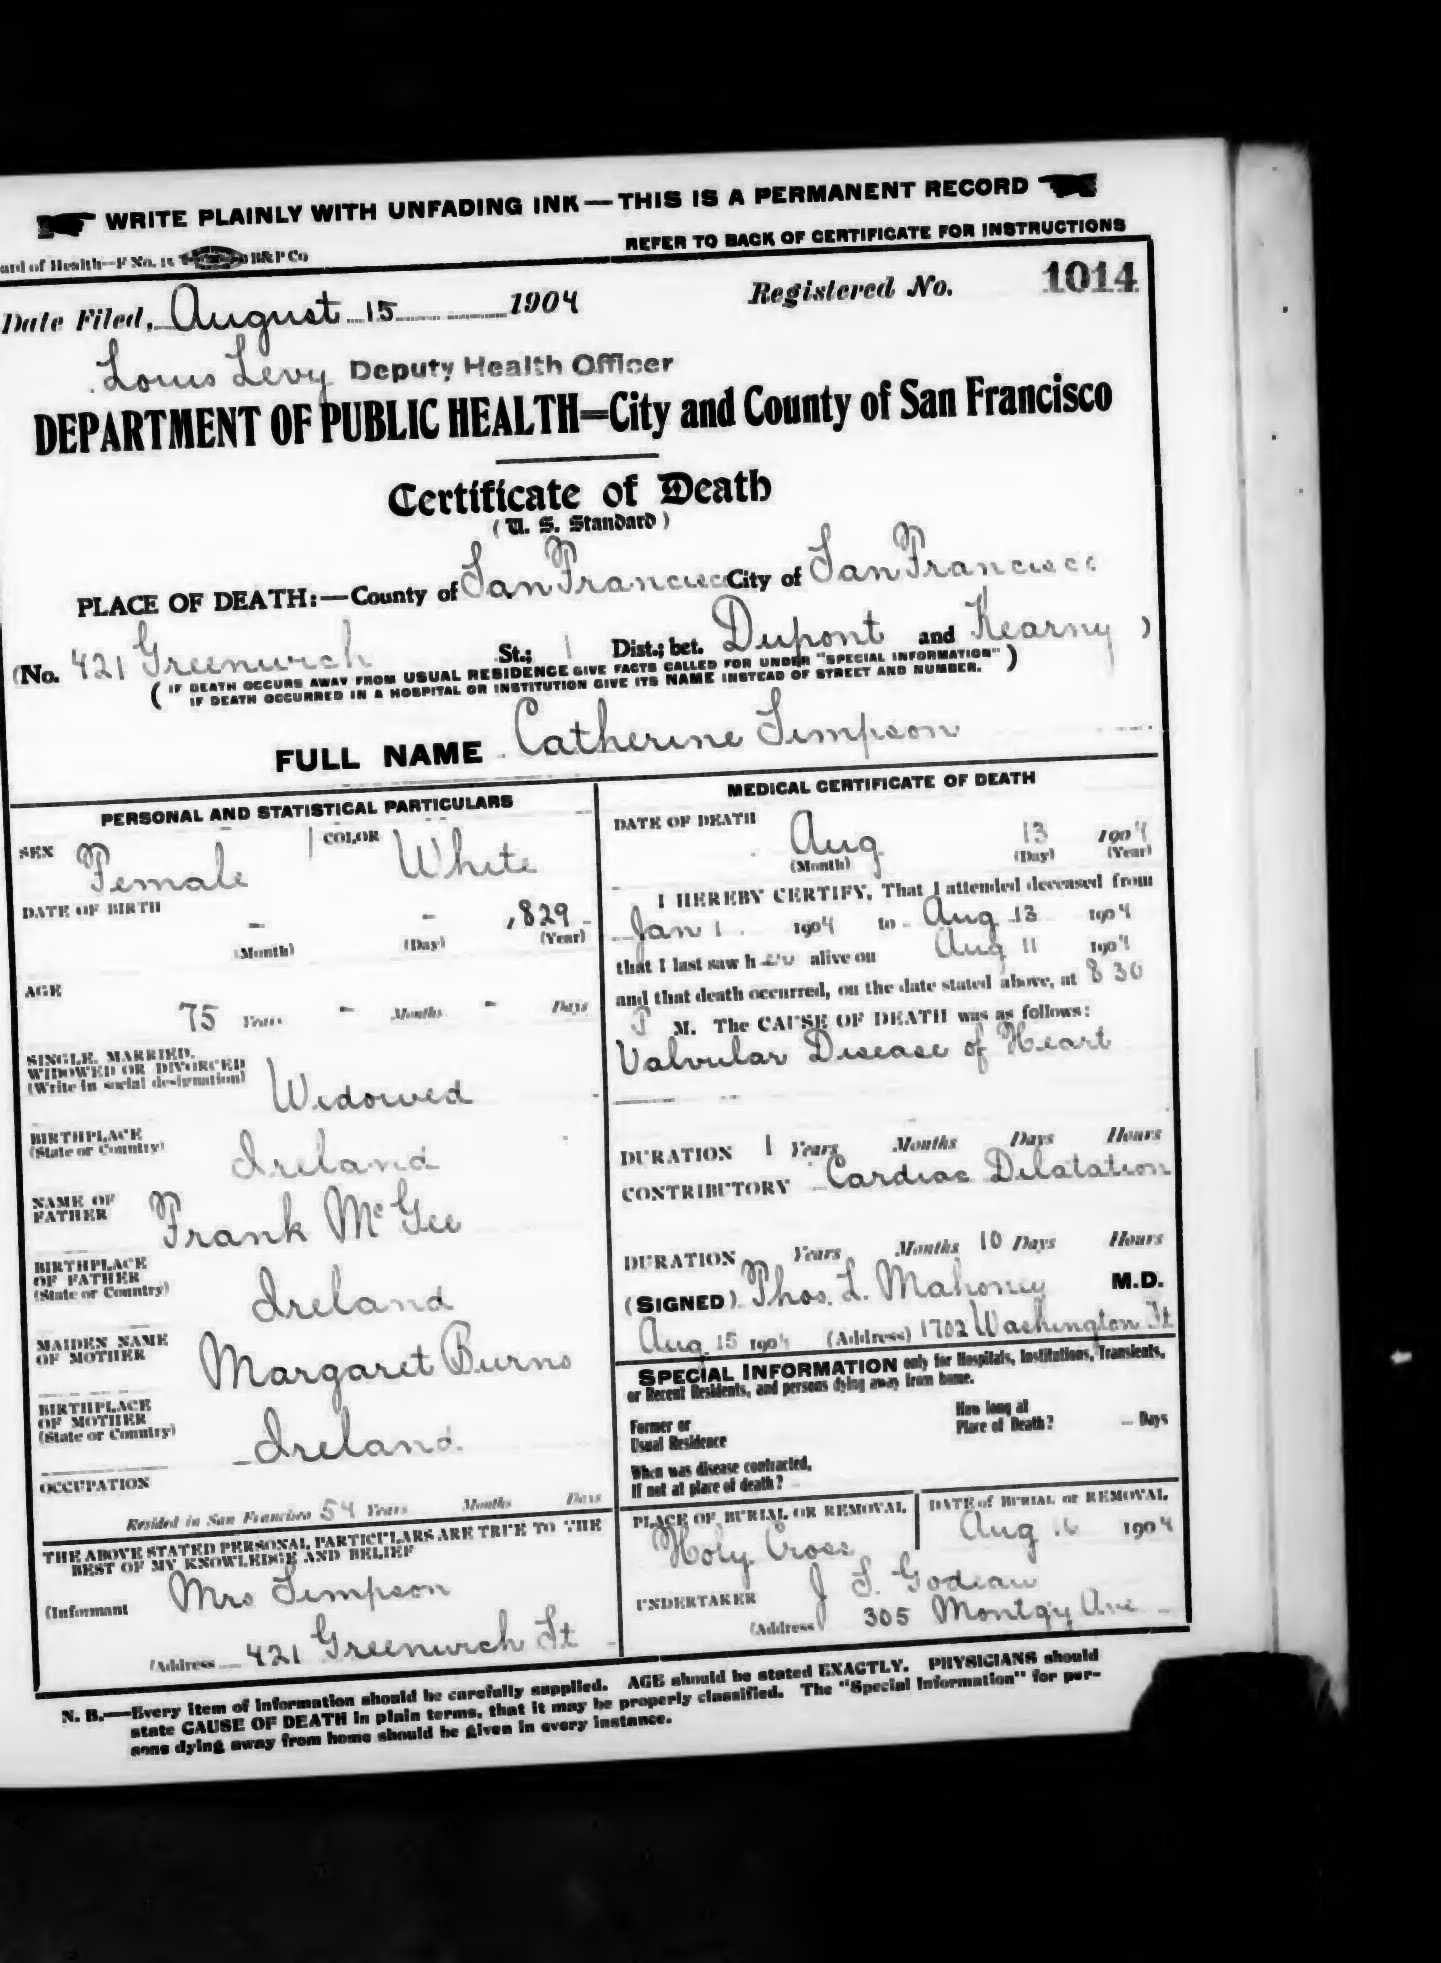 WRITE PLAINLY WITH UNFADING INK—THIS IS A PERMANENT RECORD
ard of Health—F No. 15 B&P Co
REFER TO BACK OF CERTIFICATE FOR INSTRUCTIONS
Date Filed, August 15 1904
Registered No. 1014
Louis Levy Deputy Health Officer
DEPARTMENT OF PUBLIC HEALTH—City and County of San Francisco
Certificate of Death
(U. S. Standard)
PLACE OF DEATH:—County of San Francisco City of San Francisco
(No. 421 Greenwich St.; 1 Dist.; bet. Dupont and Kearny )
( IF DEATH OCCURS AWAY FROM USUAL RESIDENCE GIVE FACTS CALLED FOR UNDER "SPECIAL INFORMATION" )
IF DEATH OCCURRED IN A HOSPITAL OR INSTITUTION GIVE ITS NAME INSTEAD OF STREET AND NUMBER.
FULL NAME Catherine Simpson
PERSONAL AND STATISTICAL PARTICULARS
SEX Female COLOR White
DATE OF BIRTH - - 1829
(Month) (Day) (Year)
AGE
75 Years - Months - Days
SINGLE, MARRIED,
WIDOWED OR DIVORCED
(Write in social designation) Widowed
BIRTHPLACE
(State or Country) Ireland
NAME OF
FATHER Frank McGee
BIRTHPLACE
OF FATHER
(State or Country) Ireland
MAIDEN NAME
OF MOTHER Margaret Burns
BIRTHPLACE
OF MOTHER
(State or Country) Ireland
OCCUPATION
Resided in San Francisco 54 Years Months Days
THE ABOVE STATED PERSONAL PARTICULARS ARE TRUE TO THE
BEST OF MY KNOWLEDGE AND BELIEF
(Informant Mrs Simpson
(Address 421 Greenwich St
MEDICAL CERTIFICATE OF DEATH
DATE OF DEATH Aug 13 1904
(Month) (Day) (Year)
I HEREBY CERTIFY, That I attended deceased from
Jan 1 1904 to Aug 13 1904
that I last saw her alive on Aug 11 1904
and that death occurred, on the date stated above, at 8 30
P M. The CAUSE OF DEATH was as follows:
Valvular Disease of Heart
DURATION 1 Years Months Days Hours
CONTRIBUTORY Cardiac Dilatation
DURATION Years Months 10 Days Hours
(SIGNED) Thos. L. Mahoney M.D.
Aug 15 1904 (Address) 1702 Washington St
SPECIAL INFORMATION only for Hospitals, Institutions, Transients,
or Recent Residents, and persons dying away from home.
Former or
Usual Residence
How long at
Place of Death? Days
When was disease contracted,
If not at place of death?
PLACE OF BURIAL OR REMOVAL
Holy Cross
DATE of BURIAL or REMOVAL
Aug 16 1904
UNDERTAKER J S. Godeau
(Address 305 Montgy Ave
N. B.—Every item of information should be carefully supplied. AGE should be stated EXACTLY. PHYSICIANS should
state CAUSE OF DEATH in plain terms, that it may be properly classified. The "Special Information" for per-
sons dying away from home should be given in every instance.